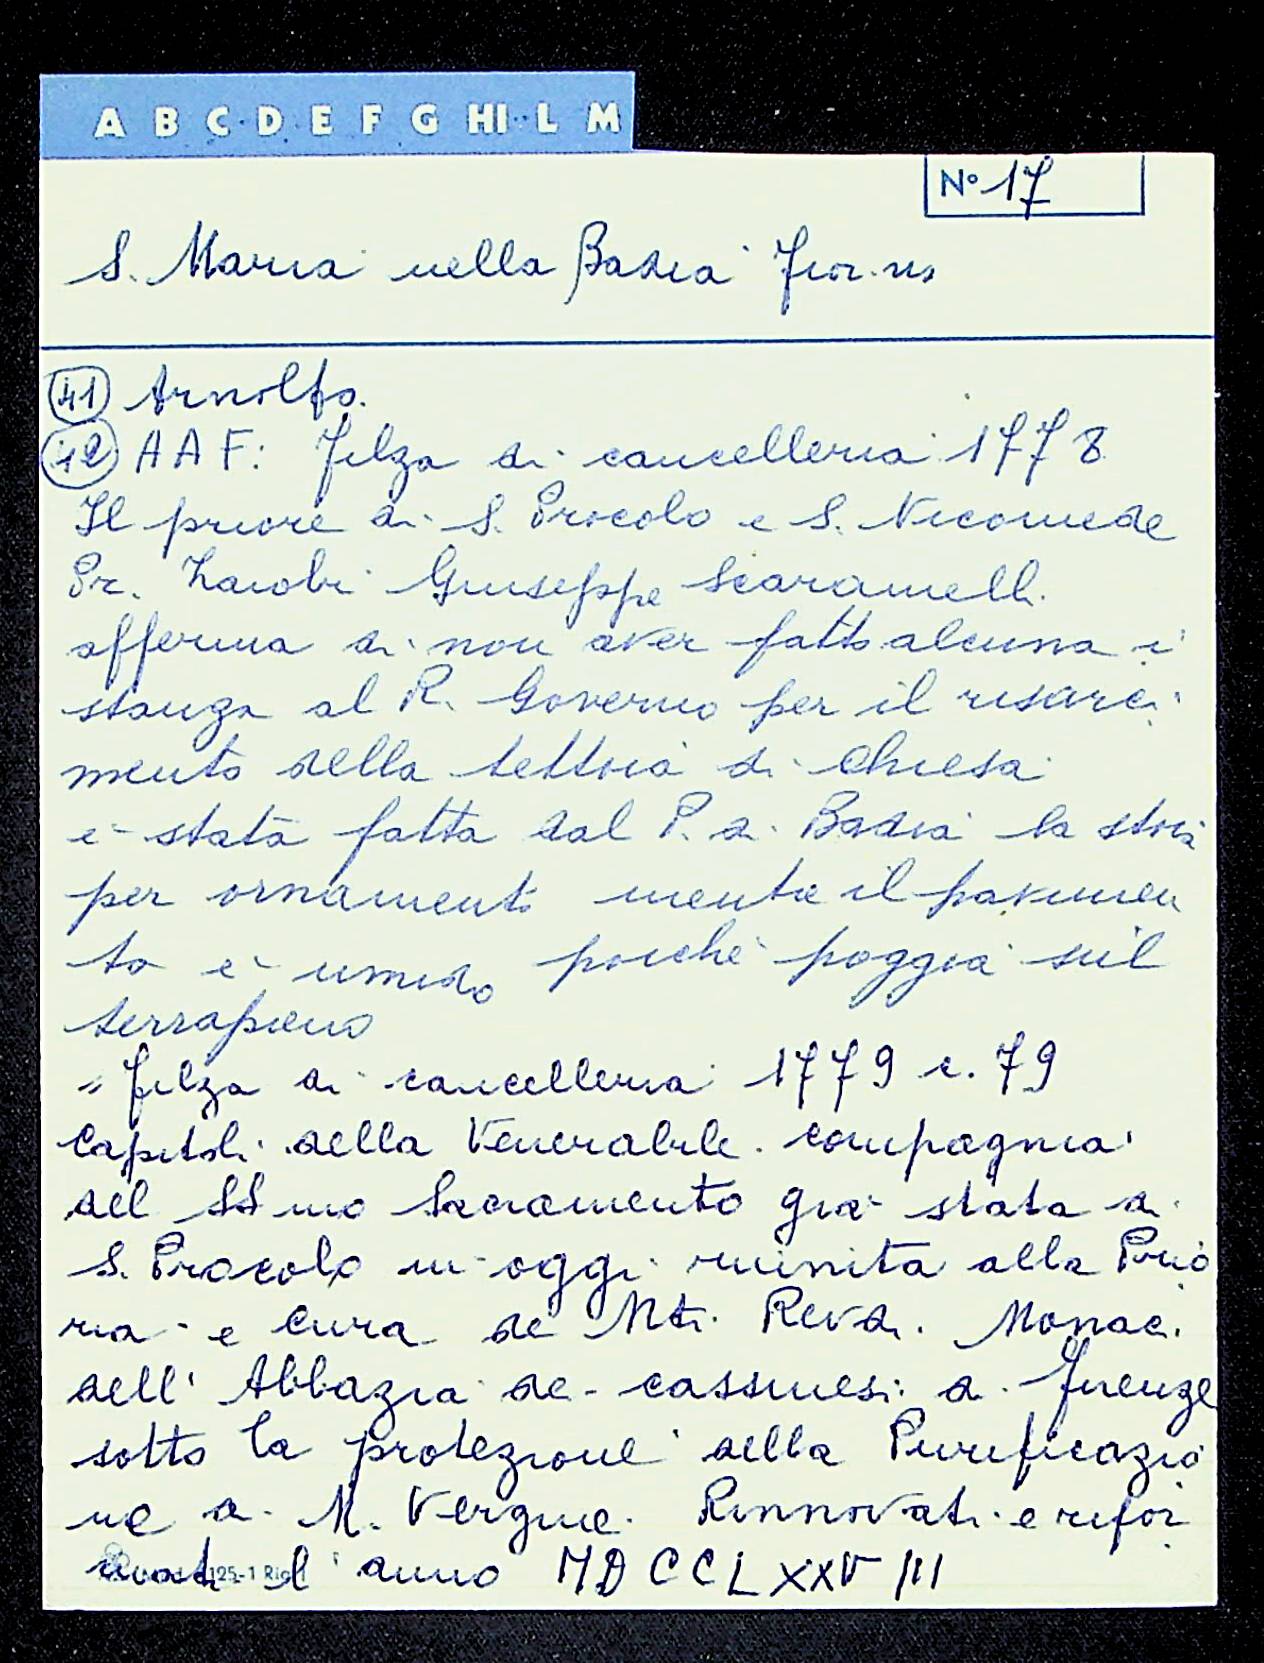 A B C D E F G HI L M
N° 17
S. Maria nella Badia Fior.na
41 Arnolfo.
42 A A F: Filza di cancelleria 1778
Il priore di S. Procolo e S. Nicomede
Pr. Zanobi Giuseppe Scaramelli
afferma di non aver fatto alcuna i
stanza al R. Governo per il risarci
mento della tettoia di chiesa
è stata fatta dal P. di Badia la stoia
per ornamento mentre il pavimen
to è umido poiché poggia sul
terrapieno
" Filza di cancelleria 1779 c. 79
Capitoli della Venerabile compagnia
del SSmo Sacramento già stata di
S. Procolo in oggi riunita alla Prio
ria e cura de Mti. Revdi. Monaci
dell' Abbazia de cassinesi di Firenze
sotto la protezione della Purificazio
ne di M. Vergine. Rinnovati e rifor
mati l' anno MDCCLXXVIII
125-1